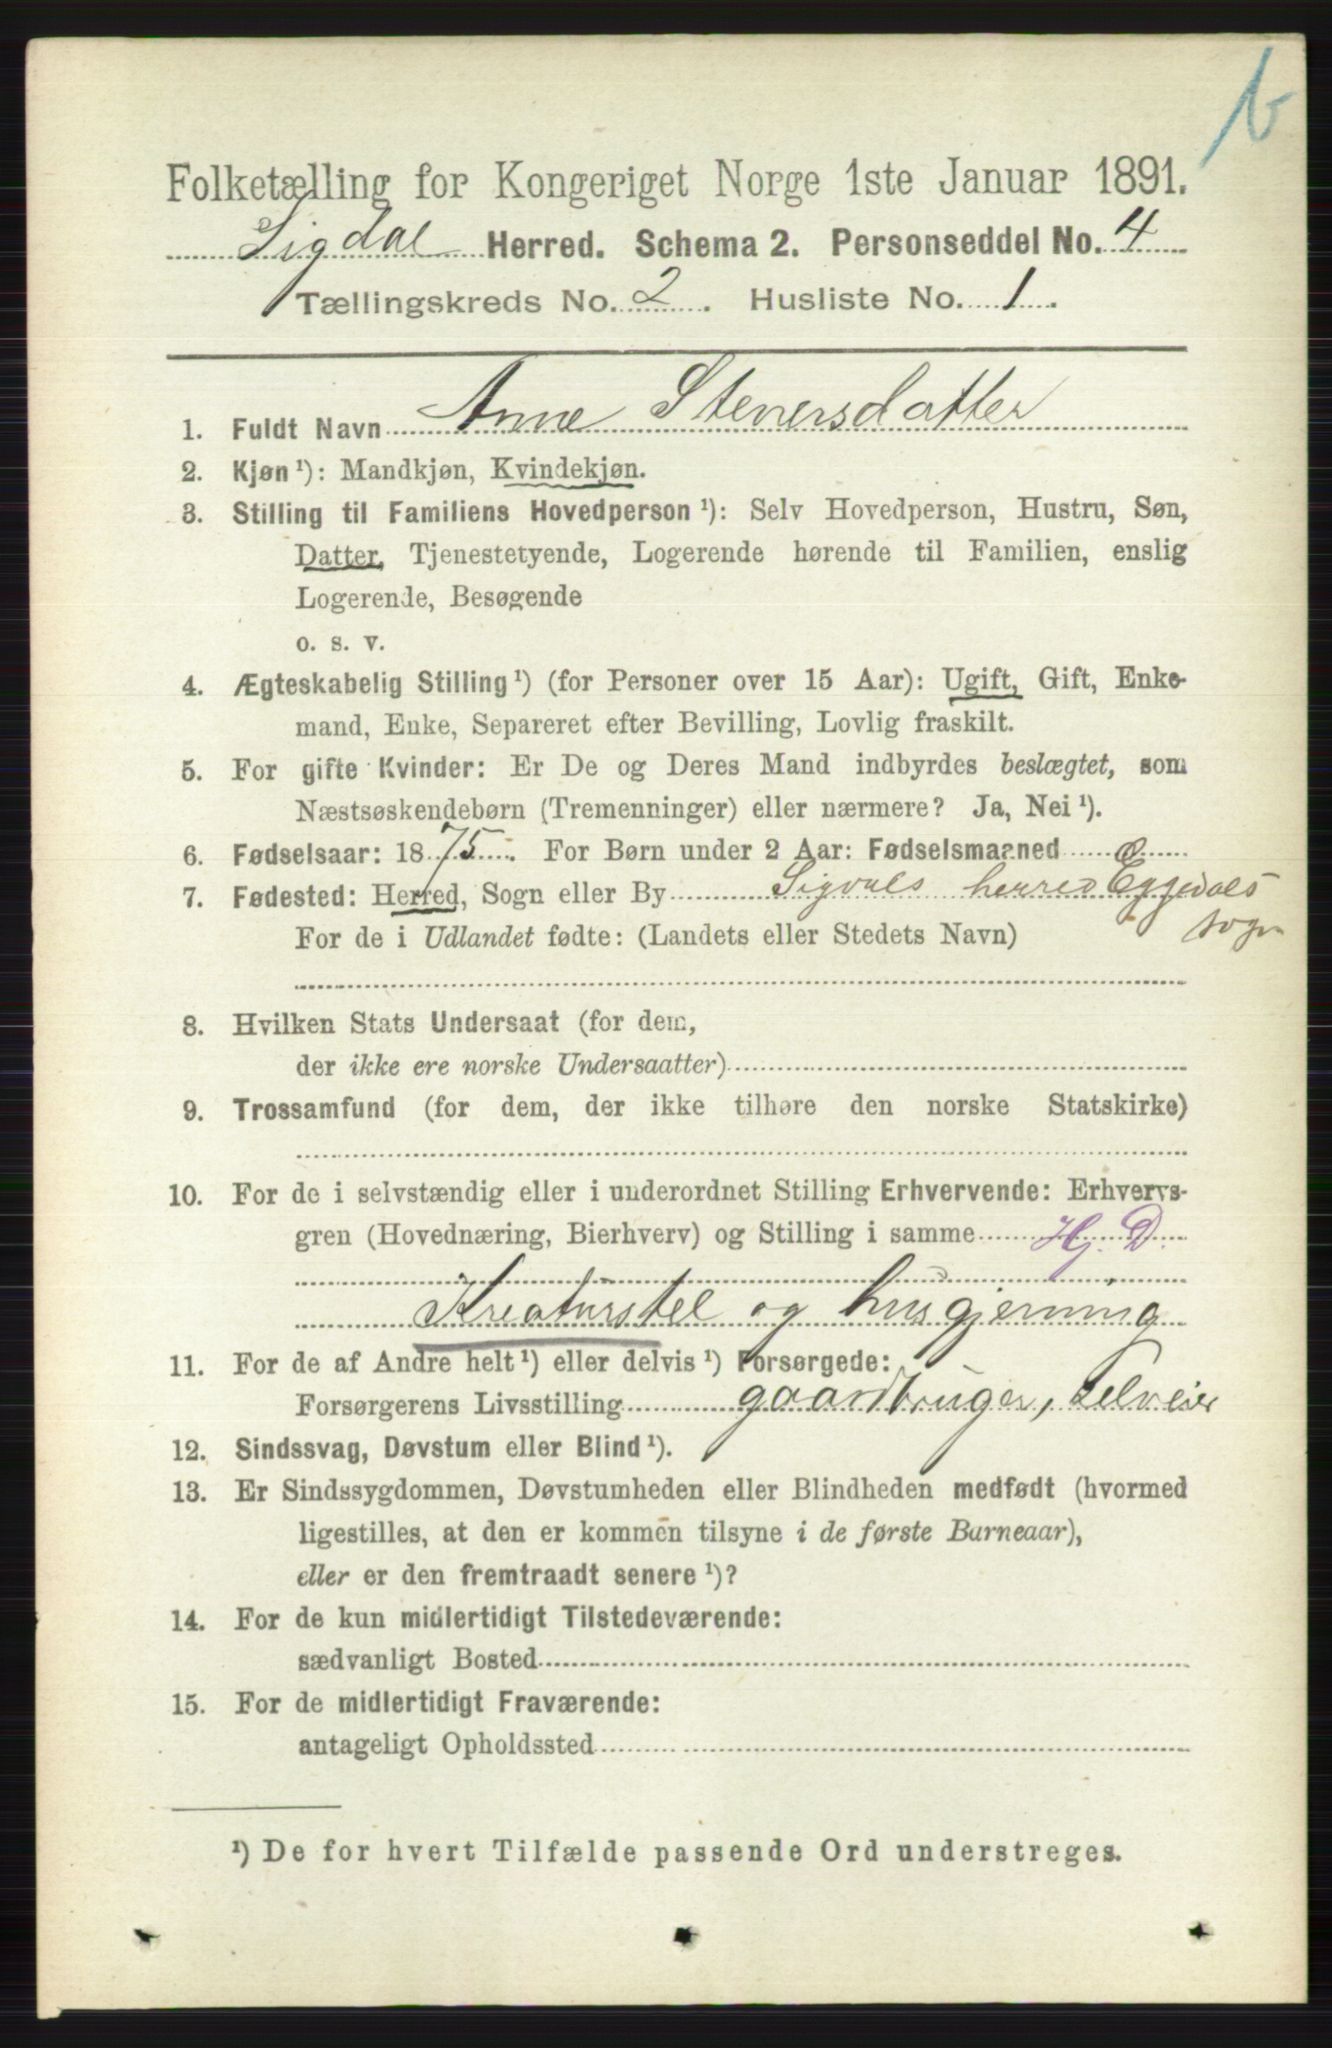 b
Folketælling for Kongeriget Norge 1ste Januar 1891.
Sigdal Herred. Schema 2. Personseddel No. 4
Tællingskreds No. 2. Husliste No. 1.
1. Fuldt Navn Anne Stenersdatter
2. Kjøn ¹): Mandkjøn, Kvindekjøn.
3. Stilling til Familiens Hovedperson ¹): Selv Hovedperson, Hustru, Søn,
Datter, Tjenestetyende, Logerende hørende til Familien, enslig
Logerende, Besøgende
o. s. v.
4. Ægteskabelig Stilling ¹) (for Personer over 15 Aar): Ugift, Gift, Enke-
mand, Enke, Separeret efter Bevilling, Lovlig fraskilt.
5. For gifte Kvinder: Er De og Deres Mand indbyrdes beslægtet, som
Næstsøskendebørn (Tremenninger) eller nærmere? Ja, Nei ¹).
6. Fødselsaar: 1875. For Børn under 2 Aar: Fødselsmaaned o
7. Fødested: Herred, Sogn eller By Sigdals herred Eggedals
sogn
For de i Udlandet fødte: (Landets eller Stedets Navn)
8. Hvilken Stats Undersaat (for dem,
der ikke ere norske Undersaatter)
9. Trossamfund (for dem, der ikke tilhøre den norske Statskirke)
10. For de i selvstændig eller i underordnet Stilling Erhvervende: Erhvervs-
gren (Hovednæring, Bierhverv) og Stilling i samme Hj. D.
Kreaturstel og husgjerning
11. For de af Andre helt ¹) eller delvis ¹) Forsørgede:
Forsørgerens Livsstilling gaardbruger, selveier
12. Sindssvag, Døvstum eller Blind ¹).
13. Er Sindssygdommen, Døvstumheden eller Blindheden medfødt (hvormed
ligestilles, at den er kommen tilsyne i de første Barneaar),
eller er den fremtraadt senere ¹)?
14. For de kun midlertidigt Tilstedeværende:
sædvanligt Bosted
15. For de midlertidigt Fraværende:
antageligt Opholdssted
¹) De for hvert Tilfælde passende Ord understreges.